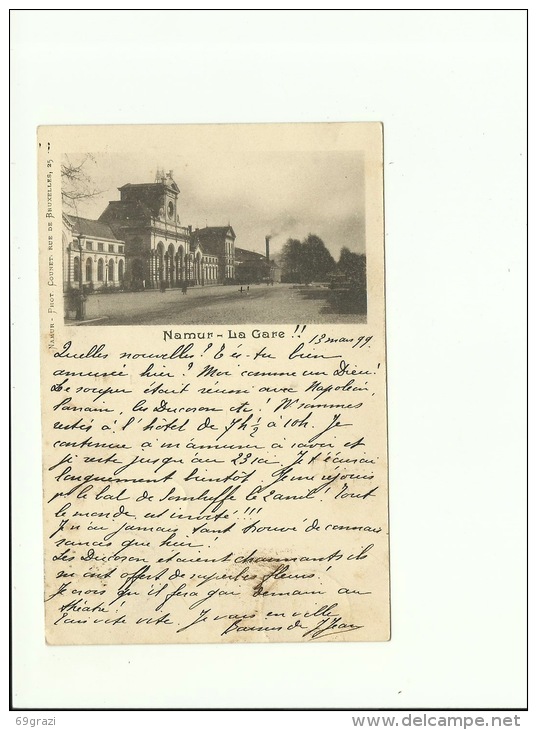 NAMUR - PHOT. COUNET, RUE DE BRUXELLES, 25
Namur - La Gare !! 13 mars 99.
Quelles nouvelles? T'es-tu bien
amusée hier? Moi comme un Dieu!
Le souper était réussi avec Napoléon,
Parrain, les Ducoson etc! N. sommes
restés à l'hôtel de 7h ½ à 10h. Je
continue à m'amuser à savoir et
je reste jusqu'au 23 ici. Je t'écrirai
longuement bientôt. Je me réjouis
pr le bal de Sombreffe le 2 avril! Tout
le monde est invité!!!
Je n'ai jamais tant trouvé de connais
sances que hier!
Les Ducoson étaient charmants ils
m'ont offert de superbes fleurs!
Je crois qu'il fera gai demain au
théâtre!
vite vite. Je vais en ville
Baisers de Jean
69grazi
www.delcampe.net